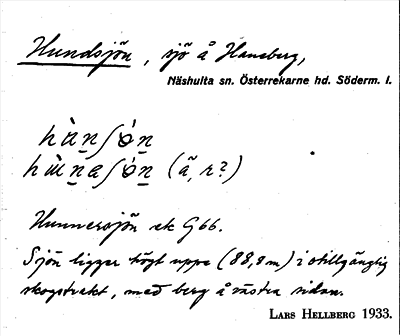 Hundsjön, sjö å Haneberg,
Näshulta sn. Österrekarne hd. Söderm. l.
hùnʃòn
hùnaʃòn (ã, r?)
Hunnersjön ek G66.
Sjön ligger högt uppe (88,8 m) i otillgänglig
skogstrakt, med berg å västra sidan.
LARS HELLBERG 1933.